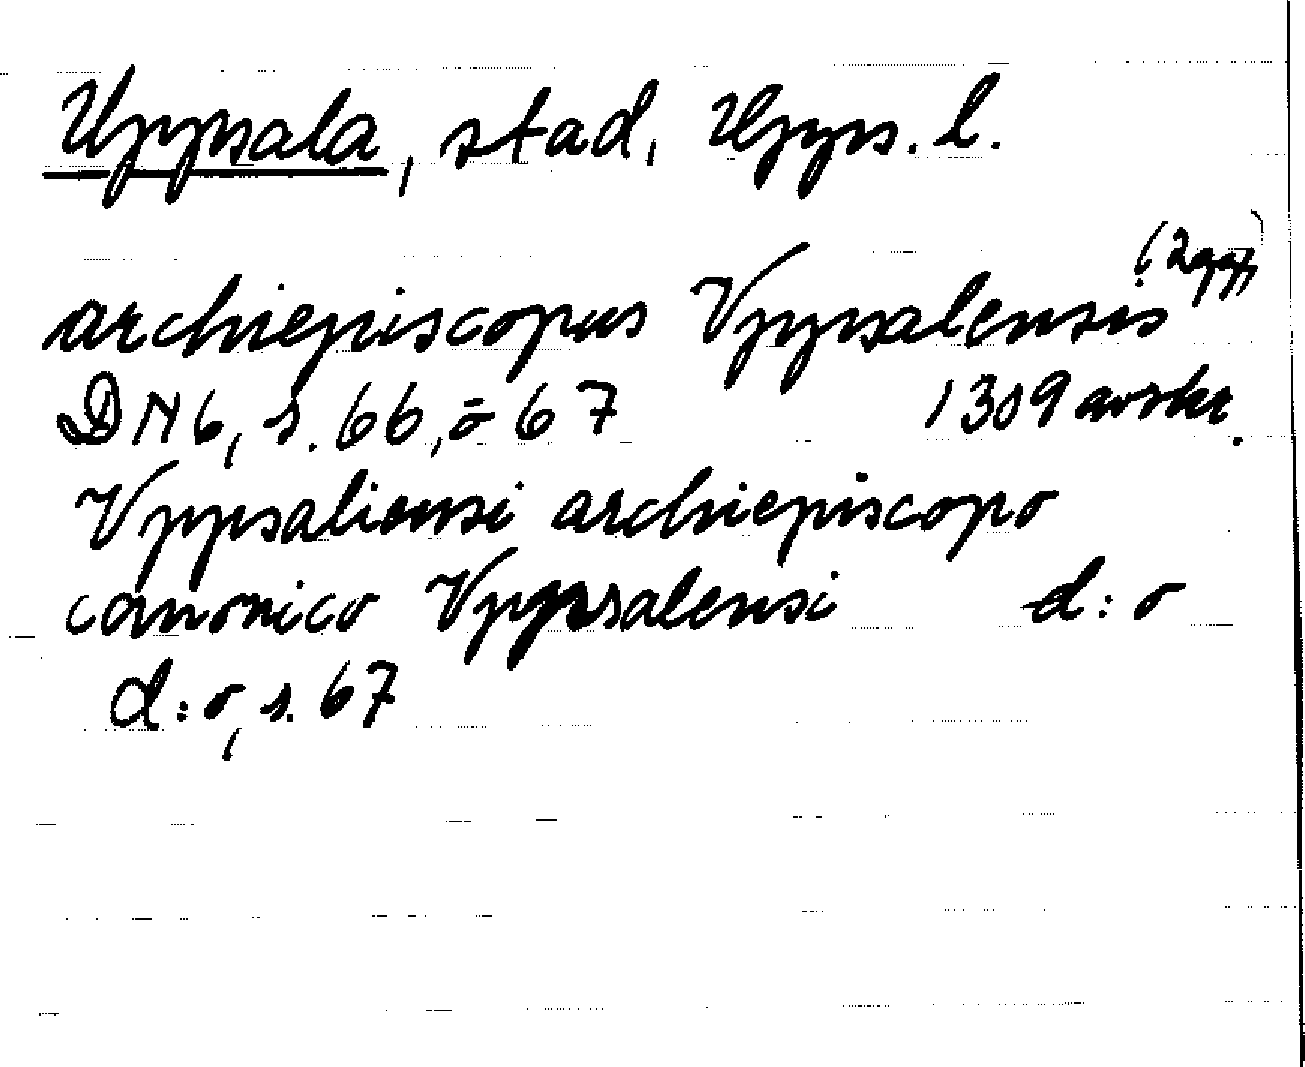 Uppsala, stad, Upps. l.
archiepiscopus Vppsalensis (2 ggr)
DN 6, s. 66, o 67 1309 avskr.
Vppsaliensi archiepiscopo
canonico Vppsalensi d:o
d:o, s. 67